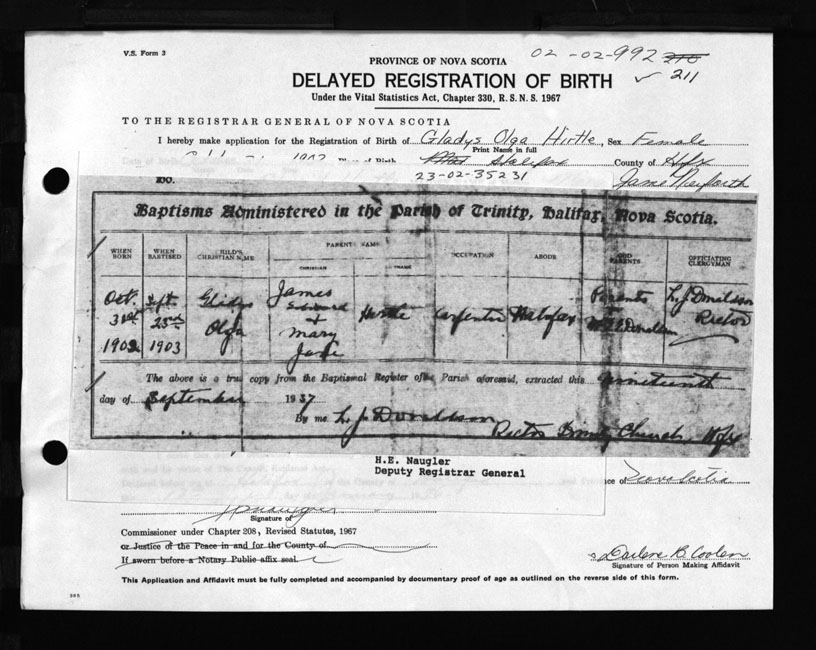 V.S. Form 3
PROVINCE OF NOVA SCOTIA
02-02-992 210
DELAYED REGISTRATION OF BIRTH
✓ 211
Under the Vital Statistics Act, Chapter 330, R.S.N.S. 1967
TO THE REGISTRAR GENERAL OF NOVA SCOTIA
I hereby make application for the Registration of Birth of Gladys Olga Hirtle, Sex Female
Print Name in full
Place of Birth Halifax County of Hfx
23-02-35231
Baptisms Administered in the Parish of Trinity, Halifax, Nova Scotia.
WHEN BORN WHEN BAPTISED CHILD'S CHRISTIAN NAME PARENTS NAME OCCUPATION ABODE GOD PARENTS OFFICIATING CLERGYMAN
CHRISTIAN
Oct. 31st 1902 Sept. 23rd 1903 Gladys Olga James Edward + Mary Jane Hirtle Carpenter Halifax Parents L. J. Donaldson Rector
The above is a true copy from the Baptismal Register of the Parish aforesaid, extracted this nineteenth
day of September 1937
By me L. J. Donaldson
Rector Trinity Church Hfx
H.E. Naugler
Deputy Registrar General
Nova Scotia
Signature of
Commissioner under Chapter 208, Revised Statutes, 1967
or Justice of the Peace in and for the County of
If sworn before a Notary Public affix seal
Darlene B Coolen
Signature of Person Making Affidavit
This Application and Affidavit must be fully completed and accompanied by documentary proof of age as outlined on the reverse side of this form.